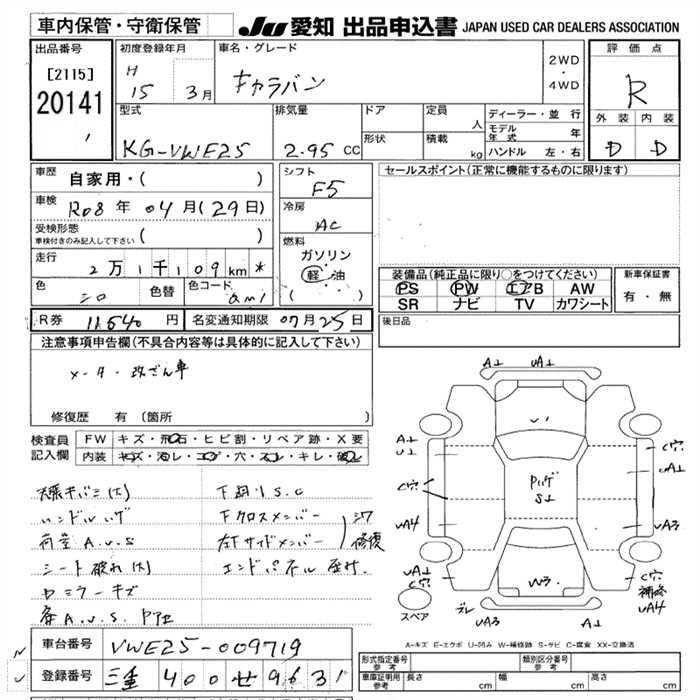 車内保管・守衛保管
JU 愛知 出品申込書 JAPAN USED CAR DEALERS ASSOCIATION
出品番号
[2115]
20141
初度登録年月
H
15 3月
車名・グレード
キャラバン
2WD
・
4WD
評価点
R
外装 内装
D D
型式
KG-VWE25
排気量
2.95 CC
ドア
形状
定員
人
積載
kg
ディーラー・並行
モデル年式 年
ハンドル 左・右
車歴 自家用・( )
車検 R08年 04月(29日)
受検形態
車検付きのみ記入して下さい ( )
走行
2万1千109km *
色
シロ
色替
色コード
QM1
シフト
F5
冷房
AC
燃料
ガソリン
・
軽・油
( )
セールスポイント(正常に機能するものに限ります)
装備品(純正品に限り○をつけてください)
PS PW エアB AW
SR ナビ TV カワシート
新車保証書
有・無
R券 11,540 円
名変通知期限 07月25日
後日品
注意事項申告欄(不具合内容等は具体的に記入して下さい)
メーター改ざん車
修復歴 有 (箇所 )
検査員
記入欄
FW キズ・飛石・ヒビ割・リペア跡・X要
内装 キズ・汚レ・コゲ・穴・スレ・キレ・破レ
天張キバミ(大)
ハンドルハゲ
荷室A.U.S
シート破れ(大)
Wミラーキズ
各A.U.S P凹
下廻りS.C
下クロスメンバー
左下サイドメンバー
シワ
修復
エンドパネル
A⊥ UA⊥
A⊥
U⊥
C穴
UA4
U1
Pハゲ
S⊥
C穴
UA⊥
UA3
W3
UA⊥
C穴
スペア
ズレ
UA3
A⊥
C穴
補修
UA4
A-キズ E-エクボ U-凹み W-補修跡 S-サビ C-腐食 XX-交換済
車台番号 VWE25-009719
登録番号 三重 400 せ 9631
形式指定番号
参考
類別区分番号
参考
車庫証明用
参考
長さ cm 幅 cm 高さ cm